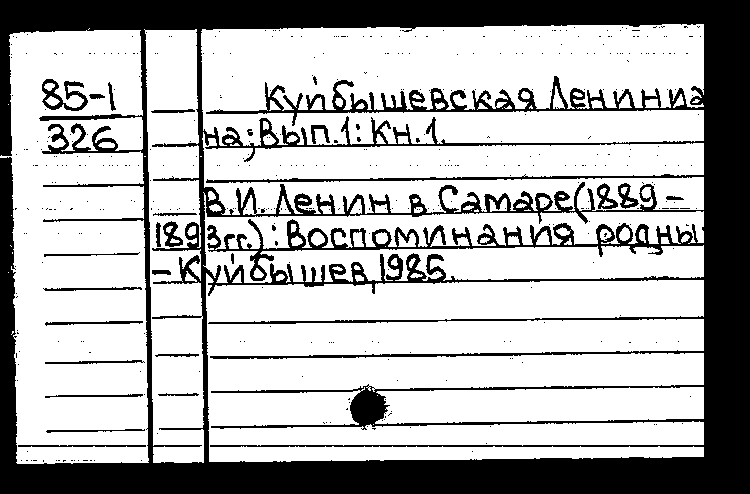 85-1
326
Куйбышевская Лениниа
на; Вып.1: Кн.1.
В.И. Ленин в Самаре(1889-
1893гг.): Воспоминания родны
- Куйбышев, 1985.